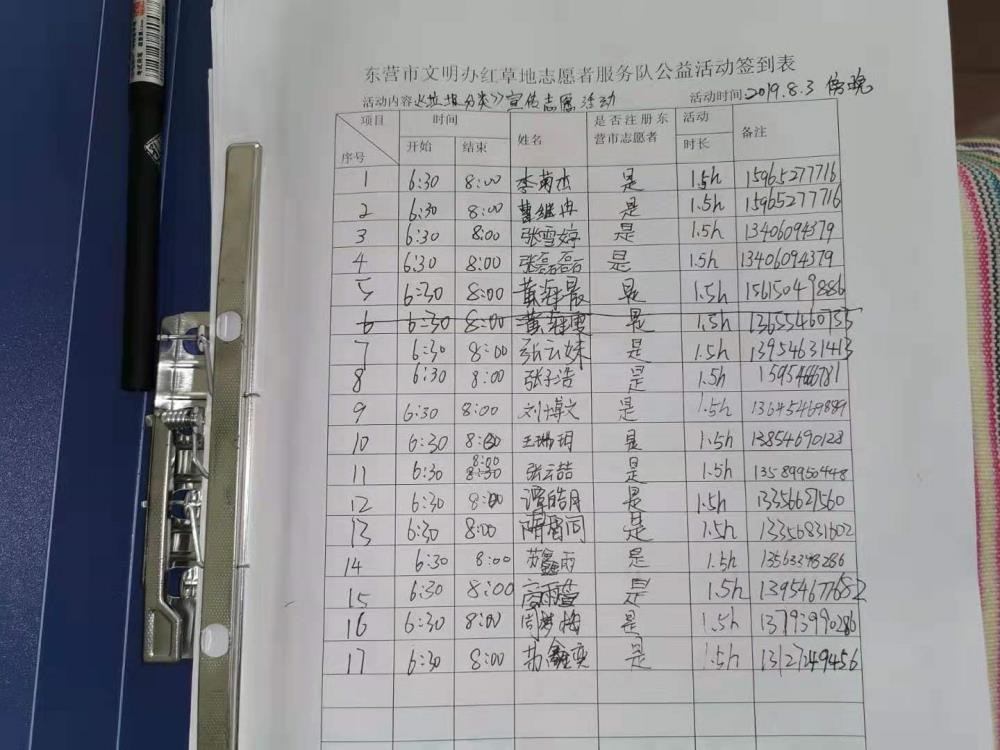 东营市文明办红草地志愿者服务队公益活动签到表
活动内容《垃圾分类》宣传志愿活动 活动时间 2019.8.3 傍晚
项目 时间 姓名 是否注册东营市志愿者 活动时长 备注
序号 开始 结束
1 6:30 8:00 李菊杰 是 1.5h 15965277716
2 6:30 8:00 曹继冉 是 1.5h 15965277716
3 6:30 8:00 张雪婷 是 1.5h 13406094379
4 6:30 8:00 张磊磊 是 1.5h 13406094379
5 6:30 8:00 黄海晨 是 1.5h 15615049886
6 6:30 8:00 是 1.5h 13655460755
7 6:30 8:00 张云妹 是 1.5h 13954631413
8 6:30 8:00 张子浩 是 1.5h
9 6:30 8:00 刘博文 是 1.5h 13645469889
10 6:30 8:00 王瑞玥 是 1.5h 13854690128
11 6:30 8:00 张云喆 是 1.5h 13589950448
12 6:30 8:00 谭皓月 是 1.5h 13356627560
13 6:30 8:00 是 1.5h 13356831602
14 6:30 8:00 苏鑫雨 是 1.5h 13563348286
15 6:30 8:00 高雨萱 是 1.5h 13954677652
16 6:30 8:00 周梦梅 是 1.5h 13793990286
17 6:30 8:00 苏鑫奕 是 1.5h 13127249456